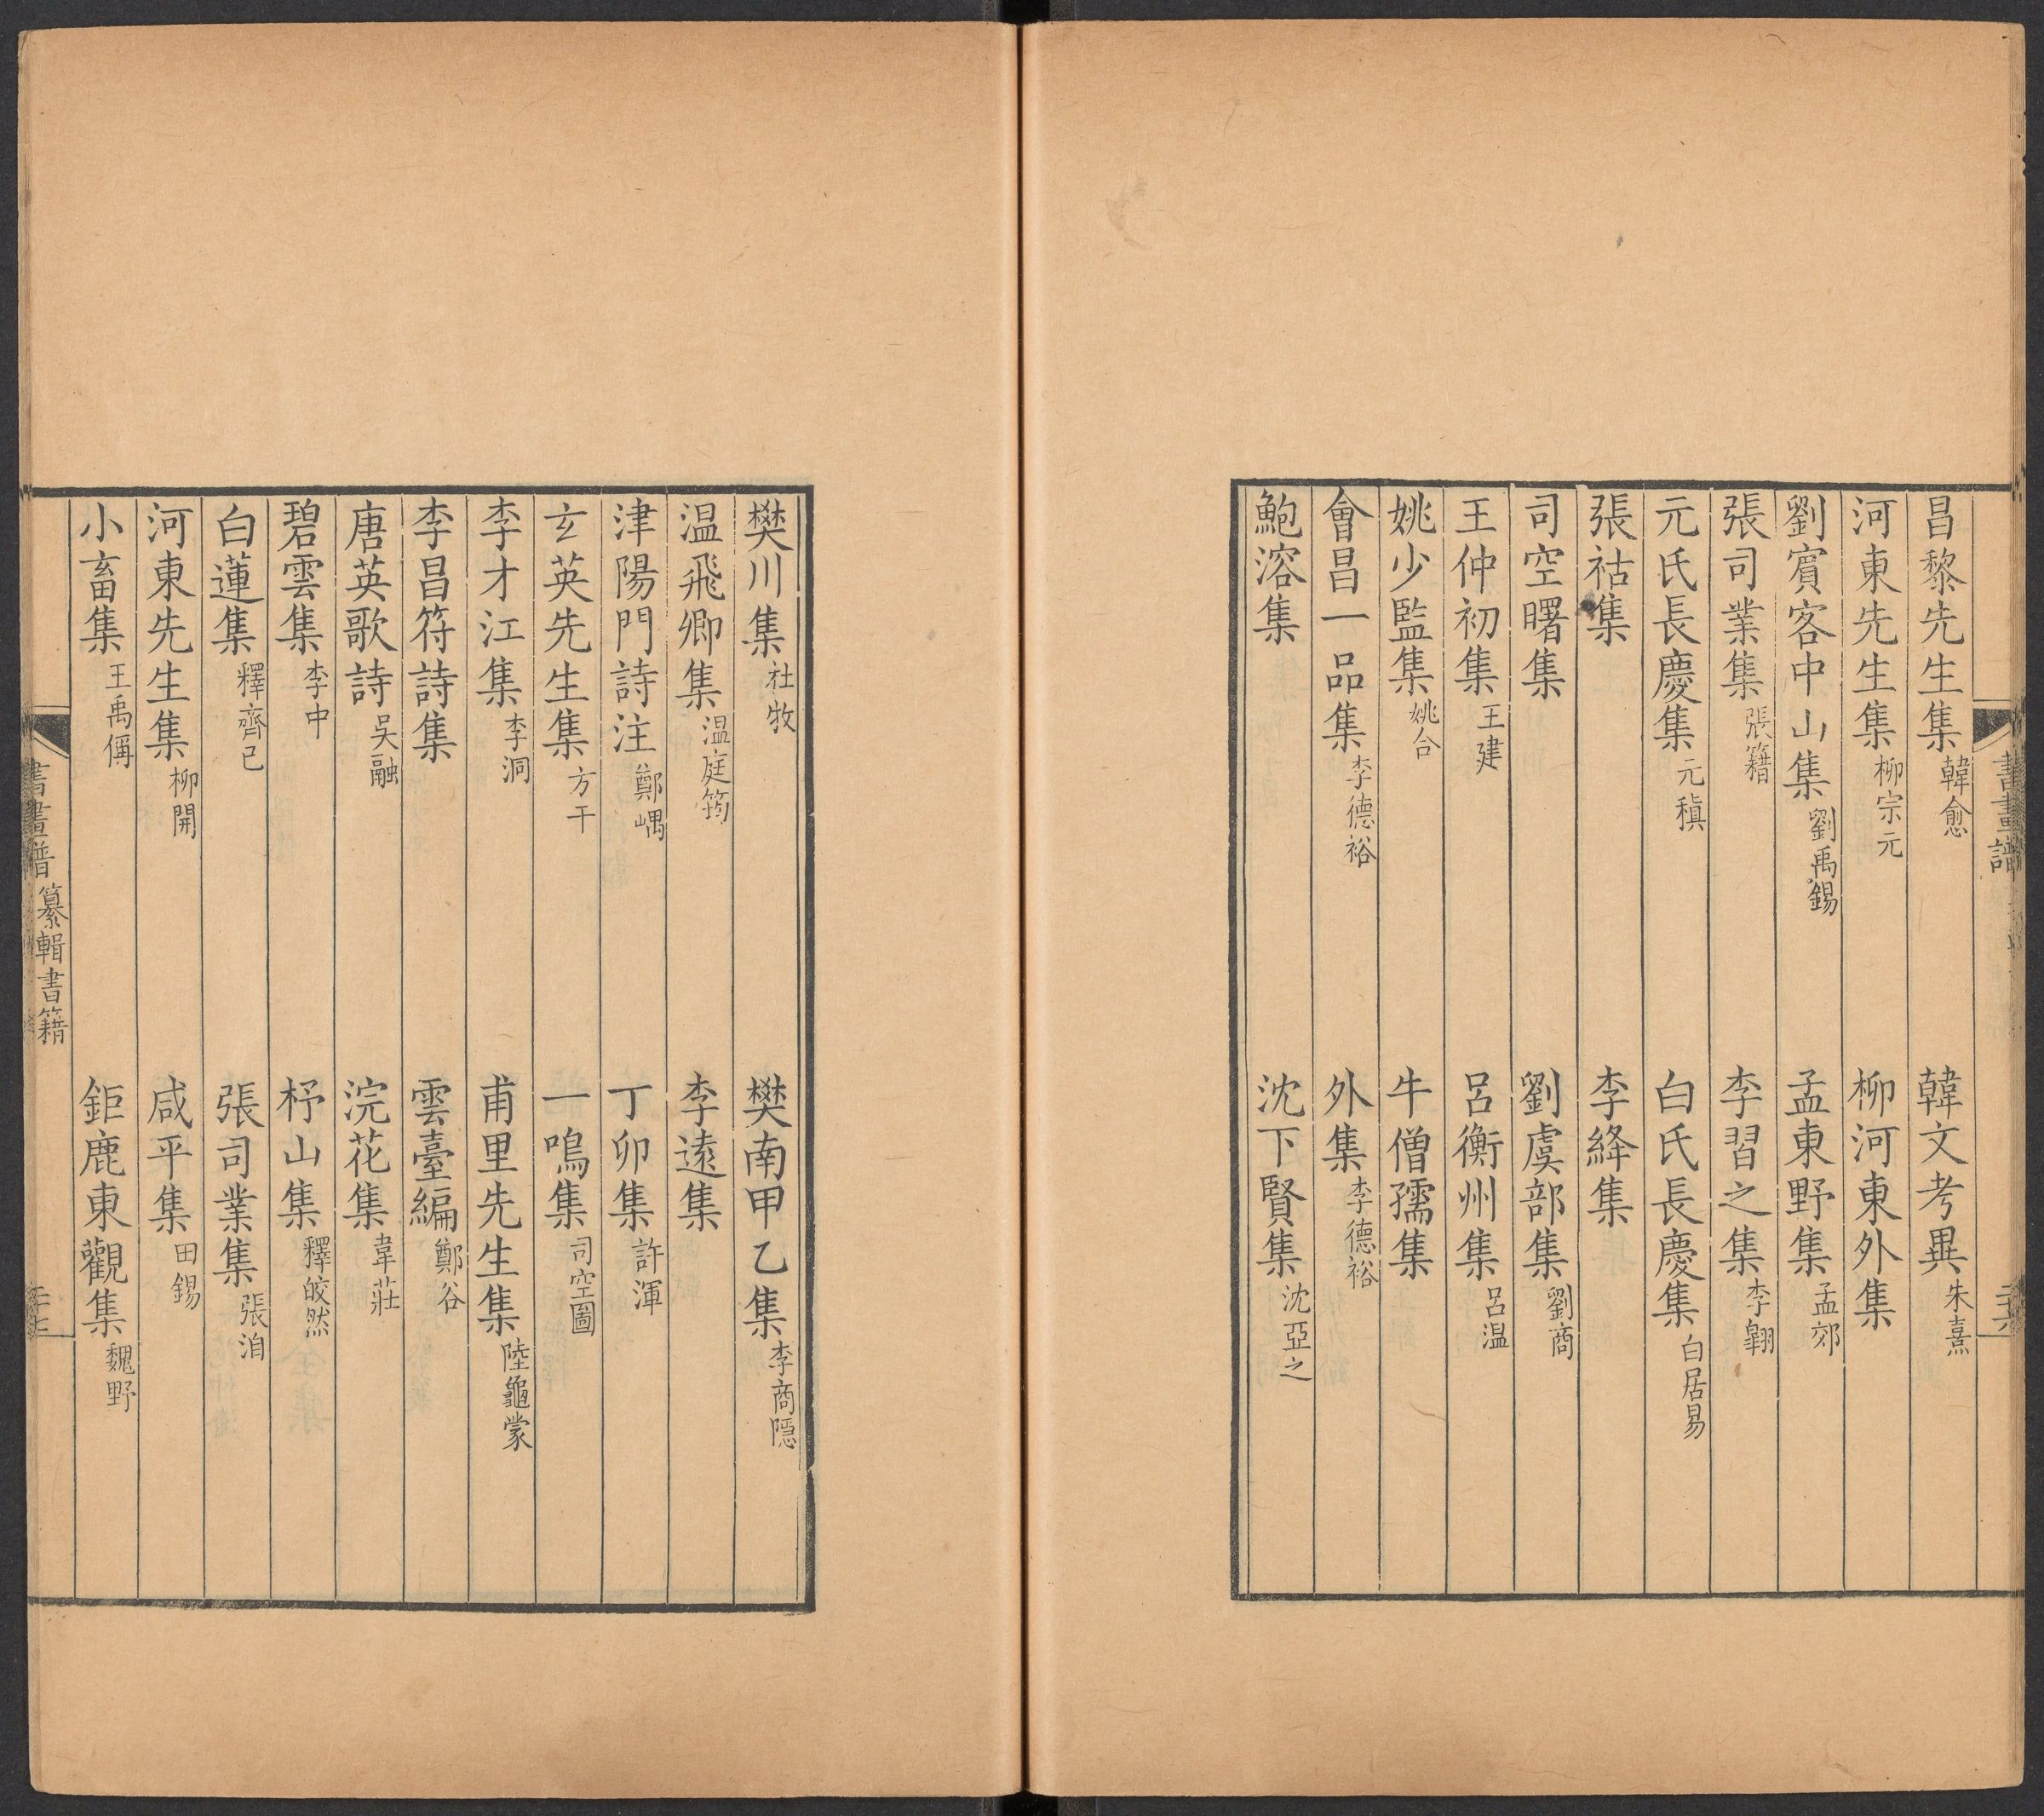 昌黎先生集 韓愈 韓文考異 朱熹
河東先生集 柳宗元 柳河東外集
劉賔客中山集 劉禹錫 孟東野集 孟郊
張司業集 張籍 李習之集 李翱
元氏長慶集 元稹 白氏長慶集 白居易
張祜集 李絳集
司空曙集 劉虞部集 劉商
王仲初集 王建 呂衡州集 呂温
姚少監集 姚合 牛僧孺集
會昌一品集 李德裕 外集 李德裕
鮑溶集 沈下賢集 沈亞之
書畫譜
樊川集 杜牧 樊南甲乙集 李商隱
温飛卿集 温庭筠 李遠集
津陽門詩注 鄭嵎 丁卯集 許渾
玄英先生集 方干 一鳴集 司空圖
李才江集 李洞 甫里先生集 陸龜蒙
李昌符詩集 雲臺編 鄭谷
唐英歌詩 吳融 浣花集 韋莊
碧雲集 李中 杼山集 釋皎然
白蓮集 釋齊已 張司業集 張洎
河東先生集 柳開 咸平集 田錫
小畜集 王禹偁 鉅鹿東觀集 魏野
書畫譜 纂輯書籍